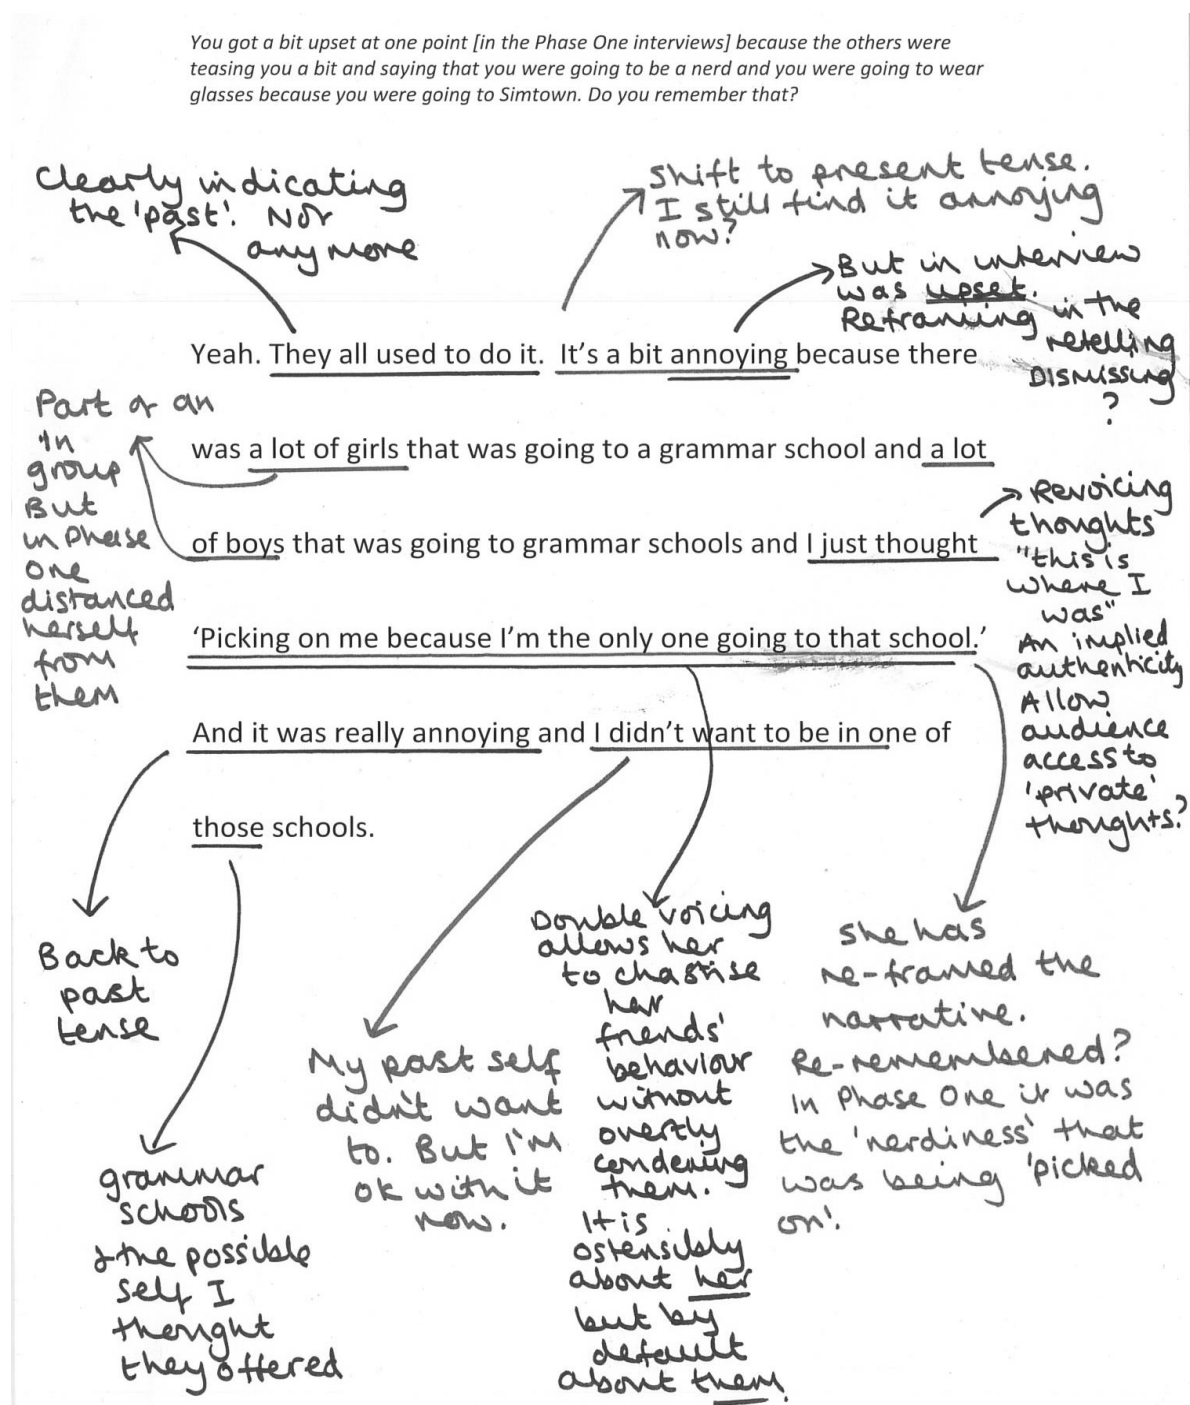 You got a bit upset at one point [in the Phase One interviews] because the others were
teasing you a bit and saying that you were going to be a nerd and you were going to wear
glasses because you were going to Simtown. Do you remember that?
Clearly indicating
the 'past'. Not
any more
Shift to present tense.
I still find it annoying
now?
But in interview
was upset.
Reframing in the
retelling
Dismissing
?
Yeah. They all used to do it. It's a bit annoying because there
was a lot of girls that was going to a grammar school and a lot
of boys that was going to grammar schools and I just thought
'Picking on me because I'm the only one going to that school.'
And it was really annoying and I didn't want to be in one of
those schools.
Part of an
in
group
But
in Phase
one
distanced
herself
from
them
Revoicing
thoughts
"this is
where I
was"
An implied
authenticity
Allow
audience
access to
'private'
thoughts?
Back to
past
tense
grammar
schools
& the possible
self I
thought
they offered
My past self
didn't want
to. But I'm
ok with it
now.
Double voicing
allows her
to chastise
her
friends'
behaviour
without
overtly
condening
them.
It is
ostensibly
about her
but by
default
about them.
She has
re-framed the
narrative.
Re-remembered?
In Phase One it was
the 'nerdiness' that
was being 'picked
on'.